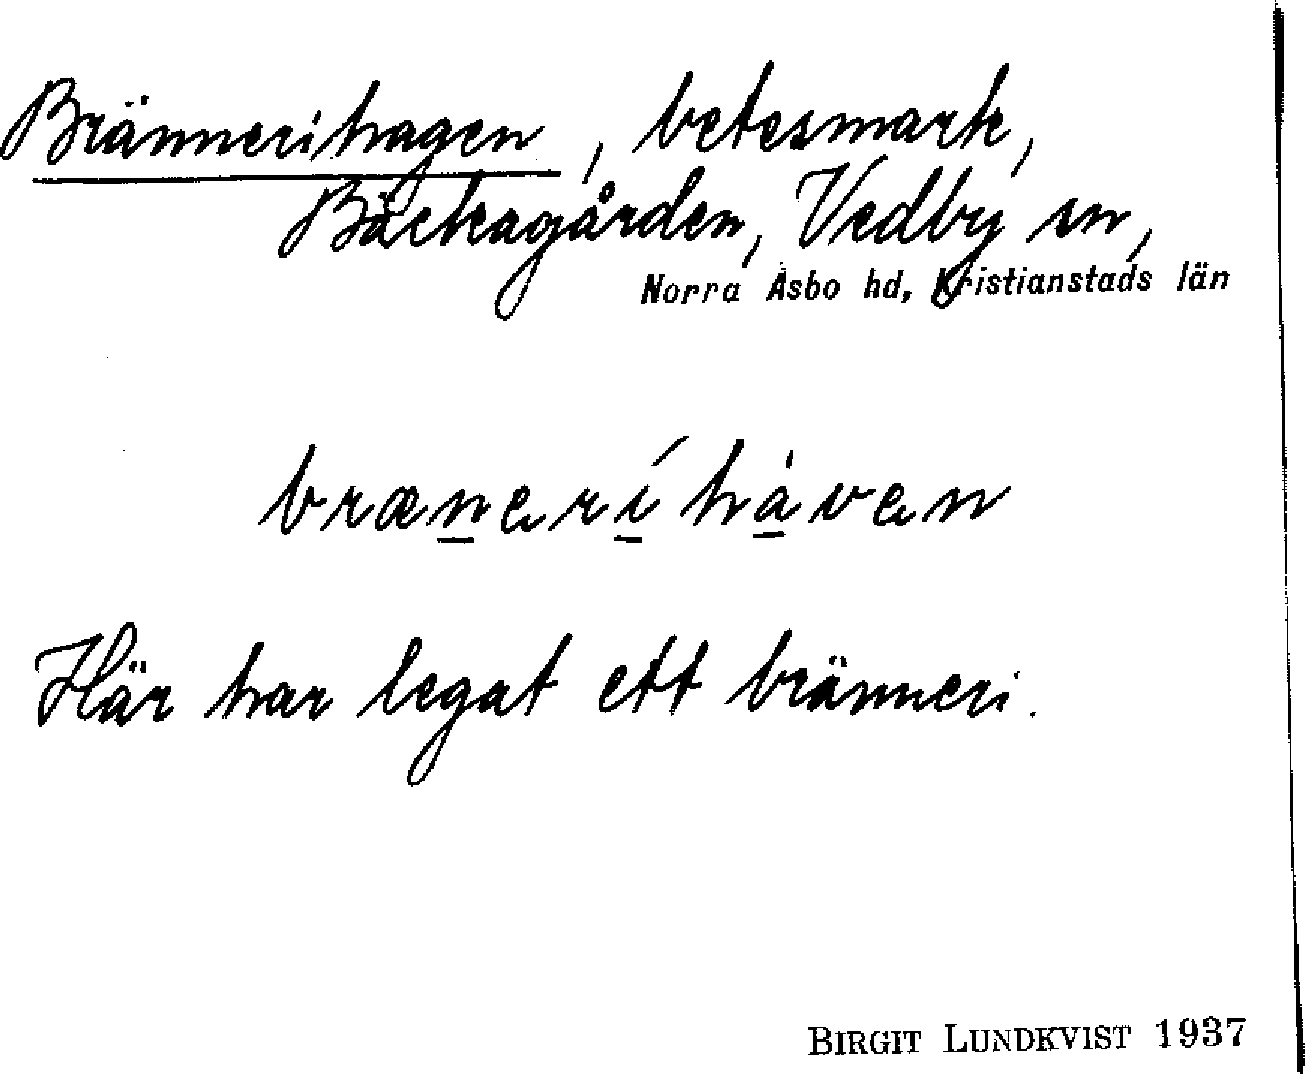 Brännerihagen, betesmark,
Bäckagården, Vedby sn,
Norra Åsbo hd, Kristianstads län
brænerí hàven
Här har legat ett bränneri.
BIRGIT LUNDKVIST 1937